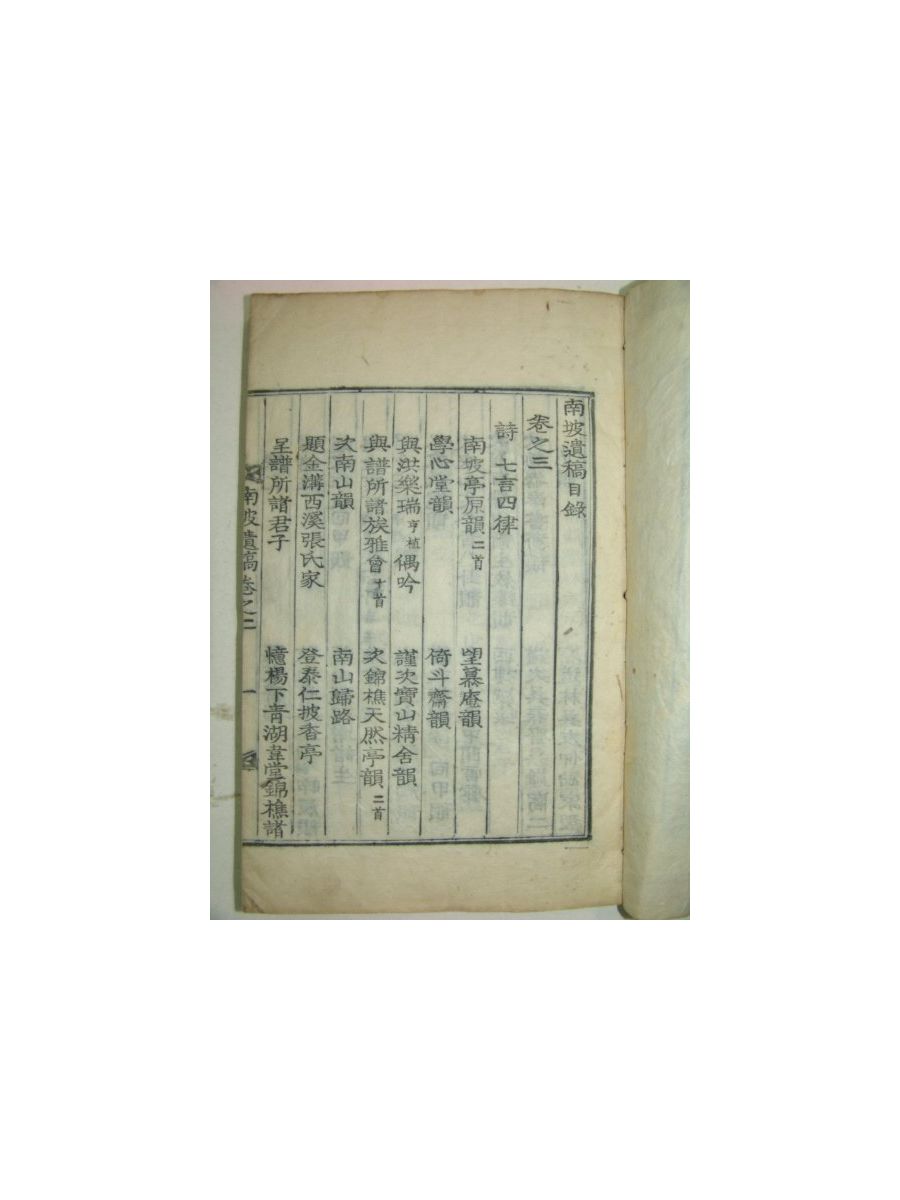 南坡遺稿目錄
卷之三
詩 七言四律
南坡亭原韻 二首 望慕庵韻
學心堂韻 倚斗齋韻
與洪樂瑞 亨植 偶吟 謹次寶山精舍韻
與譜所諸族雅會 十首 次錦樵天然亭韻 二首
次南山韻 南山歸路
題金溝西溪張氏家 登泰仁披香亭
呈譜所諸君子 憶楊下靑湖韋堂錦樵諸
南坡遺稿卷之二 一